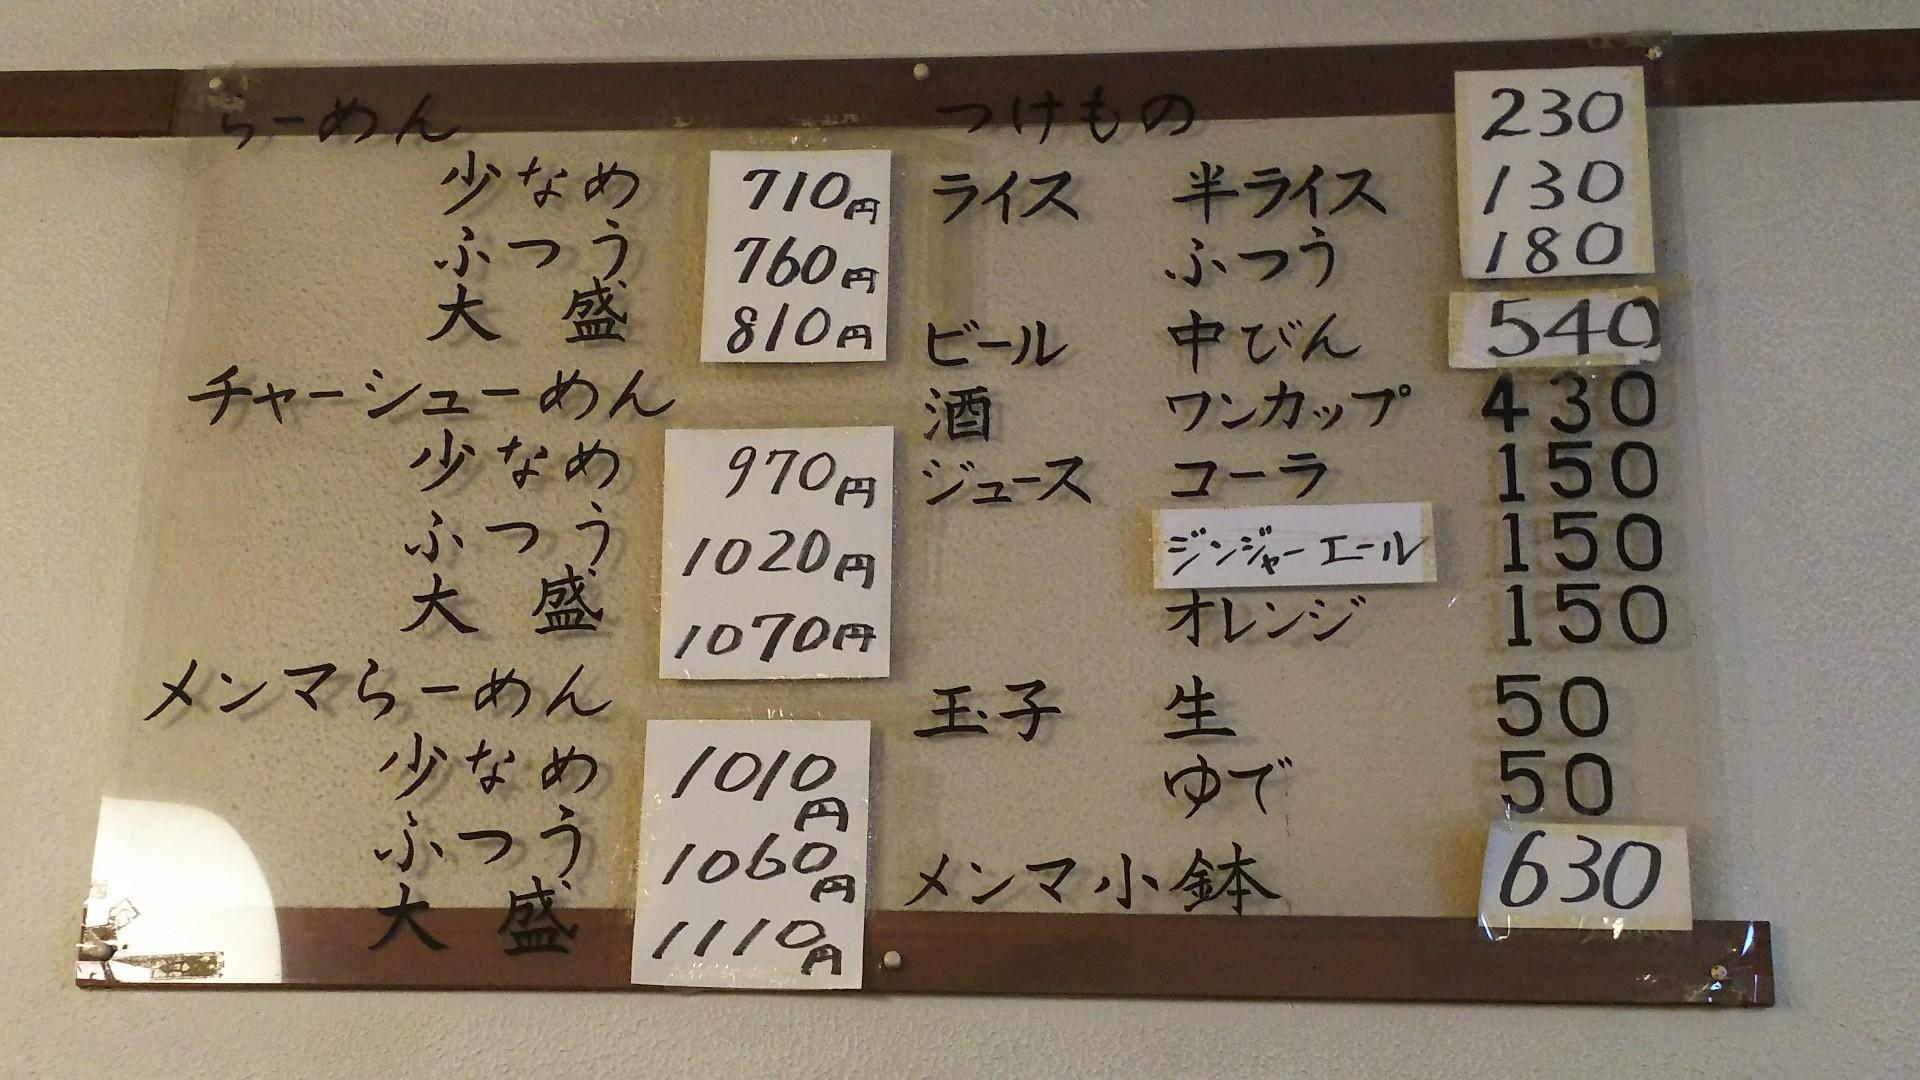 らーめん
少なめ 710円
ふつう 760円
大盛 810円
チャーシューめん
少なめ 970円
ふつう 1020円
大盛 1070円
メンマらーめん
少なめ 1010円
ふつう 1060円
大盛 1110円
つけもの 230
ライス 半ライス 130
ふつう 180
ビール 中びん 540
酒 ワンカップ 430
ジュース コーラ 150
ジンジャーエール 150
オレンジ 150
玉子 生 50
ゆで 50
メンマ小鉢 630